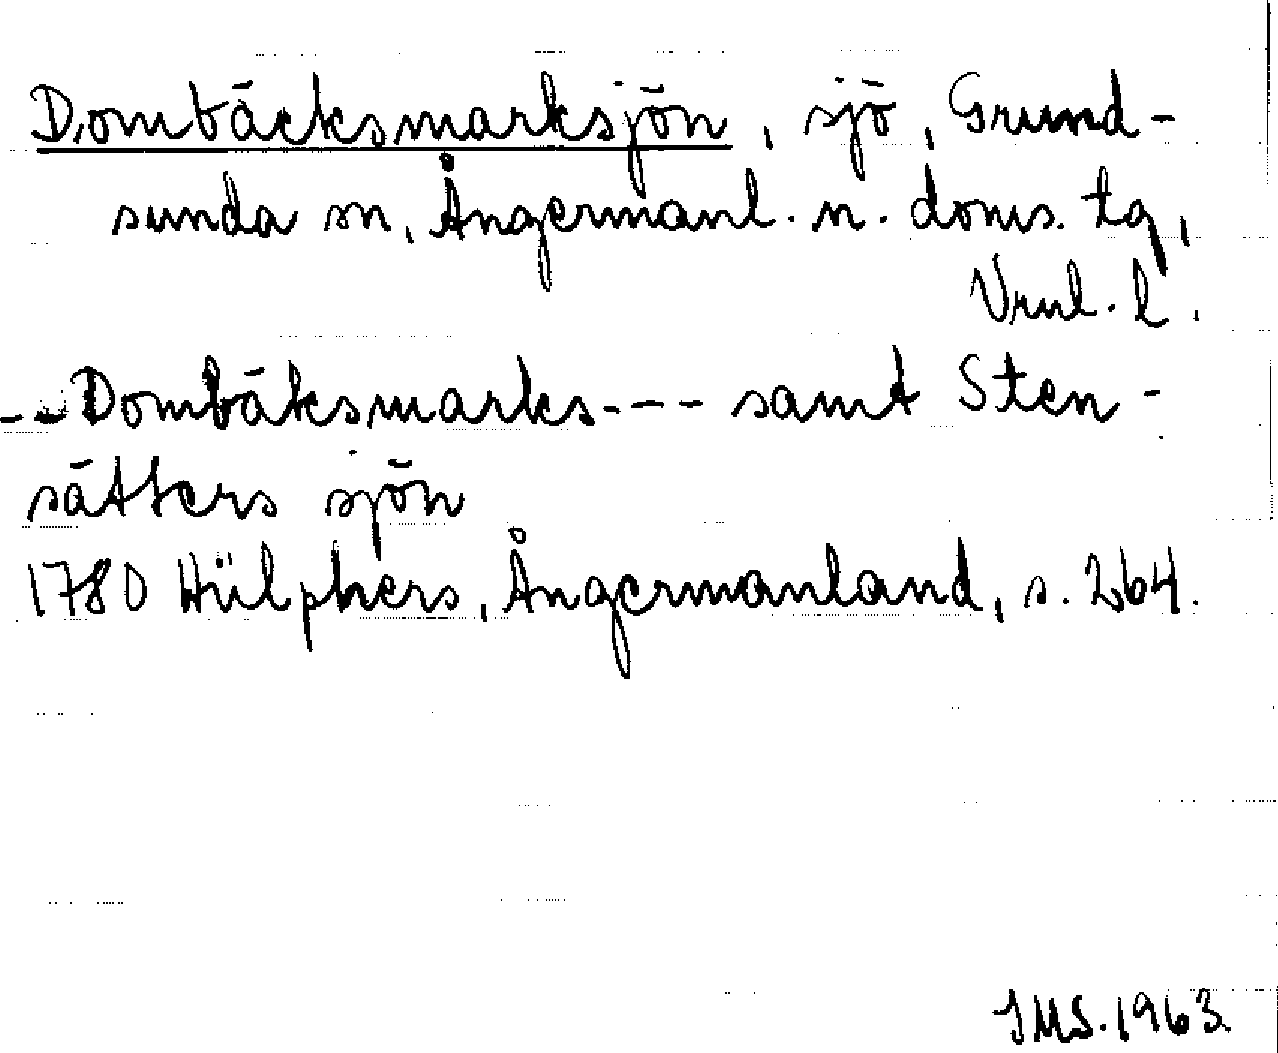 Dombäcksmarksjön, sjö, Grund-
sunda sn, Ångermanl. n. doms. tg,
Vrnl. l.
--Dombäksmarks--- samt Sten-
sätters sjön
1780 Hülphers, Ångermanland, s. 264.
IMS. 1963.